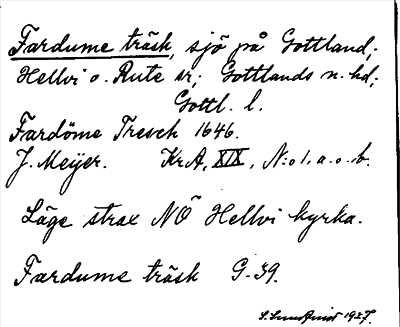 Fardume träsk, sjö på Gottland;
Hellvi o. Rute sr; Gottlands n. hd;
Gottl. l.
Fardöme Tresck 1646.
J. Meijer. KrA, XIX, N:o 1, a. o. b.
Läge strax NÖ Hellvi kyrka.
Fardume träsk G. 39.
S. Sundquist 1927.